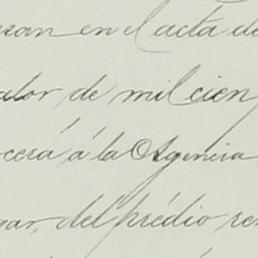 esan en el acta de
alor de mil cien
cerá á la Agencia
gar, del prédio res